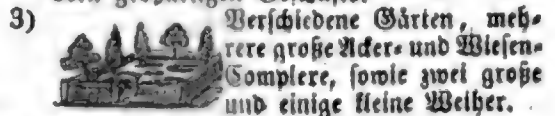 3) Verschiedene Gärten, meh-
rere große Acker- und Wiesen-
Complexe, sowie zwei große
und einige kleine Weiher.